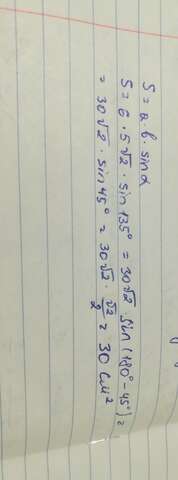 S = a · b · sin α
S = 6 · 5√2 · sin 135° = 30√2 sin (180° - 45°) =
= 30√2 · sin 45° = 30√2 · √2/2 = 30 см²